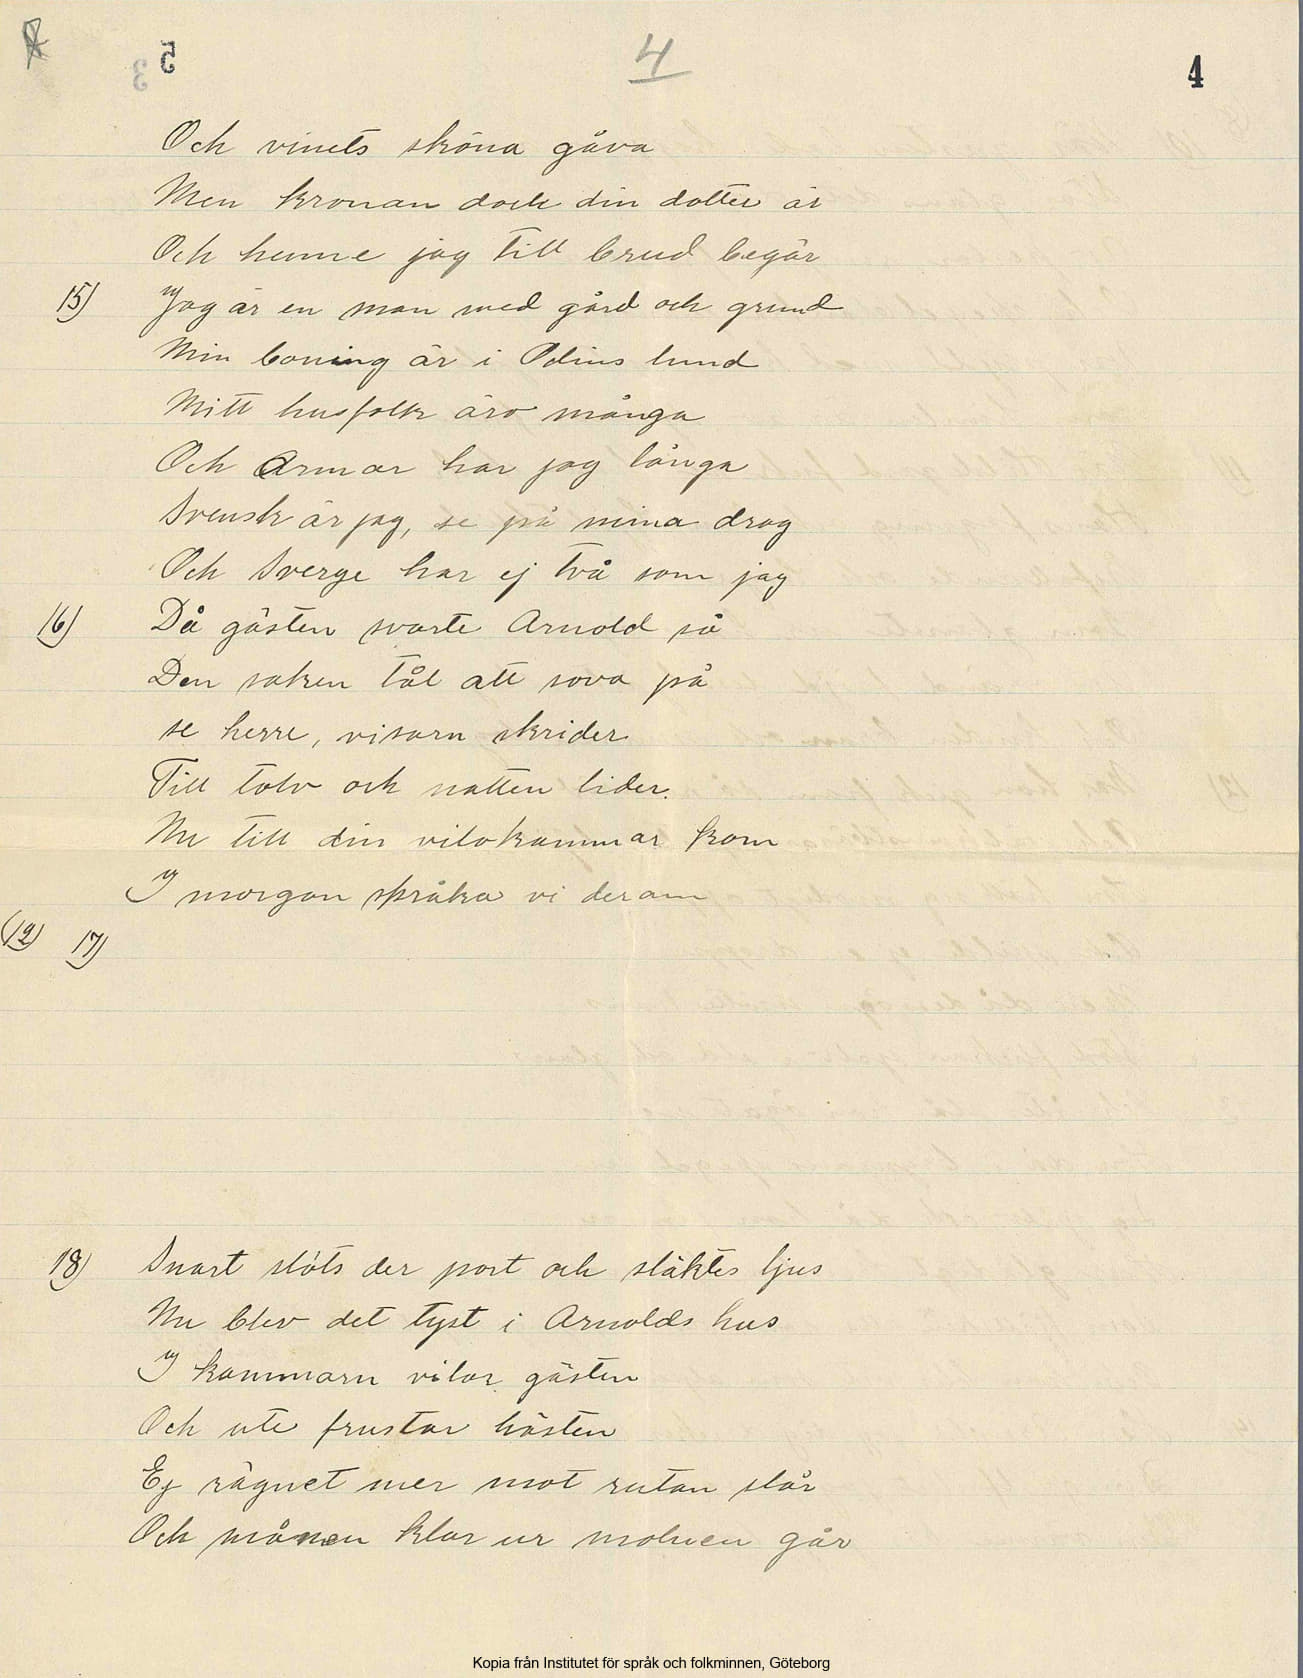 4
4
Och vinets sköna gåva
Men kronan dock din dotter är
Och henne jag till brud begär
15) Jag är en man med gård och grund
Min boning är i Odins lund
Mitt husfolk äro många
Och Armar har jag långa
Svensk är jag, se på mina drag
Och Sverge har ej två som jag
16) Då gästen svarte Arnold så
Den saken tål att sova på
se herre, visarn skrider
Till tolv och natten lider.
Nu till din vilokammar kom
I morgon språka vi derom
(12) 17)
18) Snart slöts der port och släktes ljus
Nu blev det tyst i Arnolds hus
I kammarn vilar gästen
Och ute frustar hästen
Ej rägnet mer mot rutan slår
Och månen klar ur molnen går
Kopia från Institutet för språk och folkminnen, Göteborg